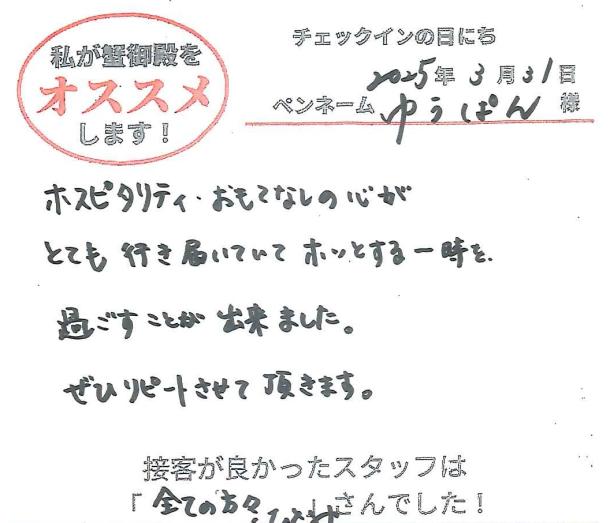 私が蟹御殿を
オススメ
します！
チェックインの日にち
2025年 3月31日
ペンネーム ゆうぱん 様
ホスピタリティ・おもてなしの心が
とても 行き届いていて ホッとする一時を
過ごすことが 出来ました。
ぜひリピートさせて 頂きます。
接客が良かったスタッフは
「 全ての方々 」さんでした！